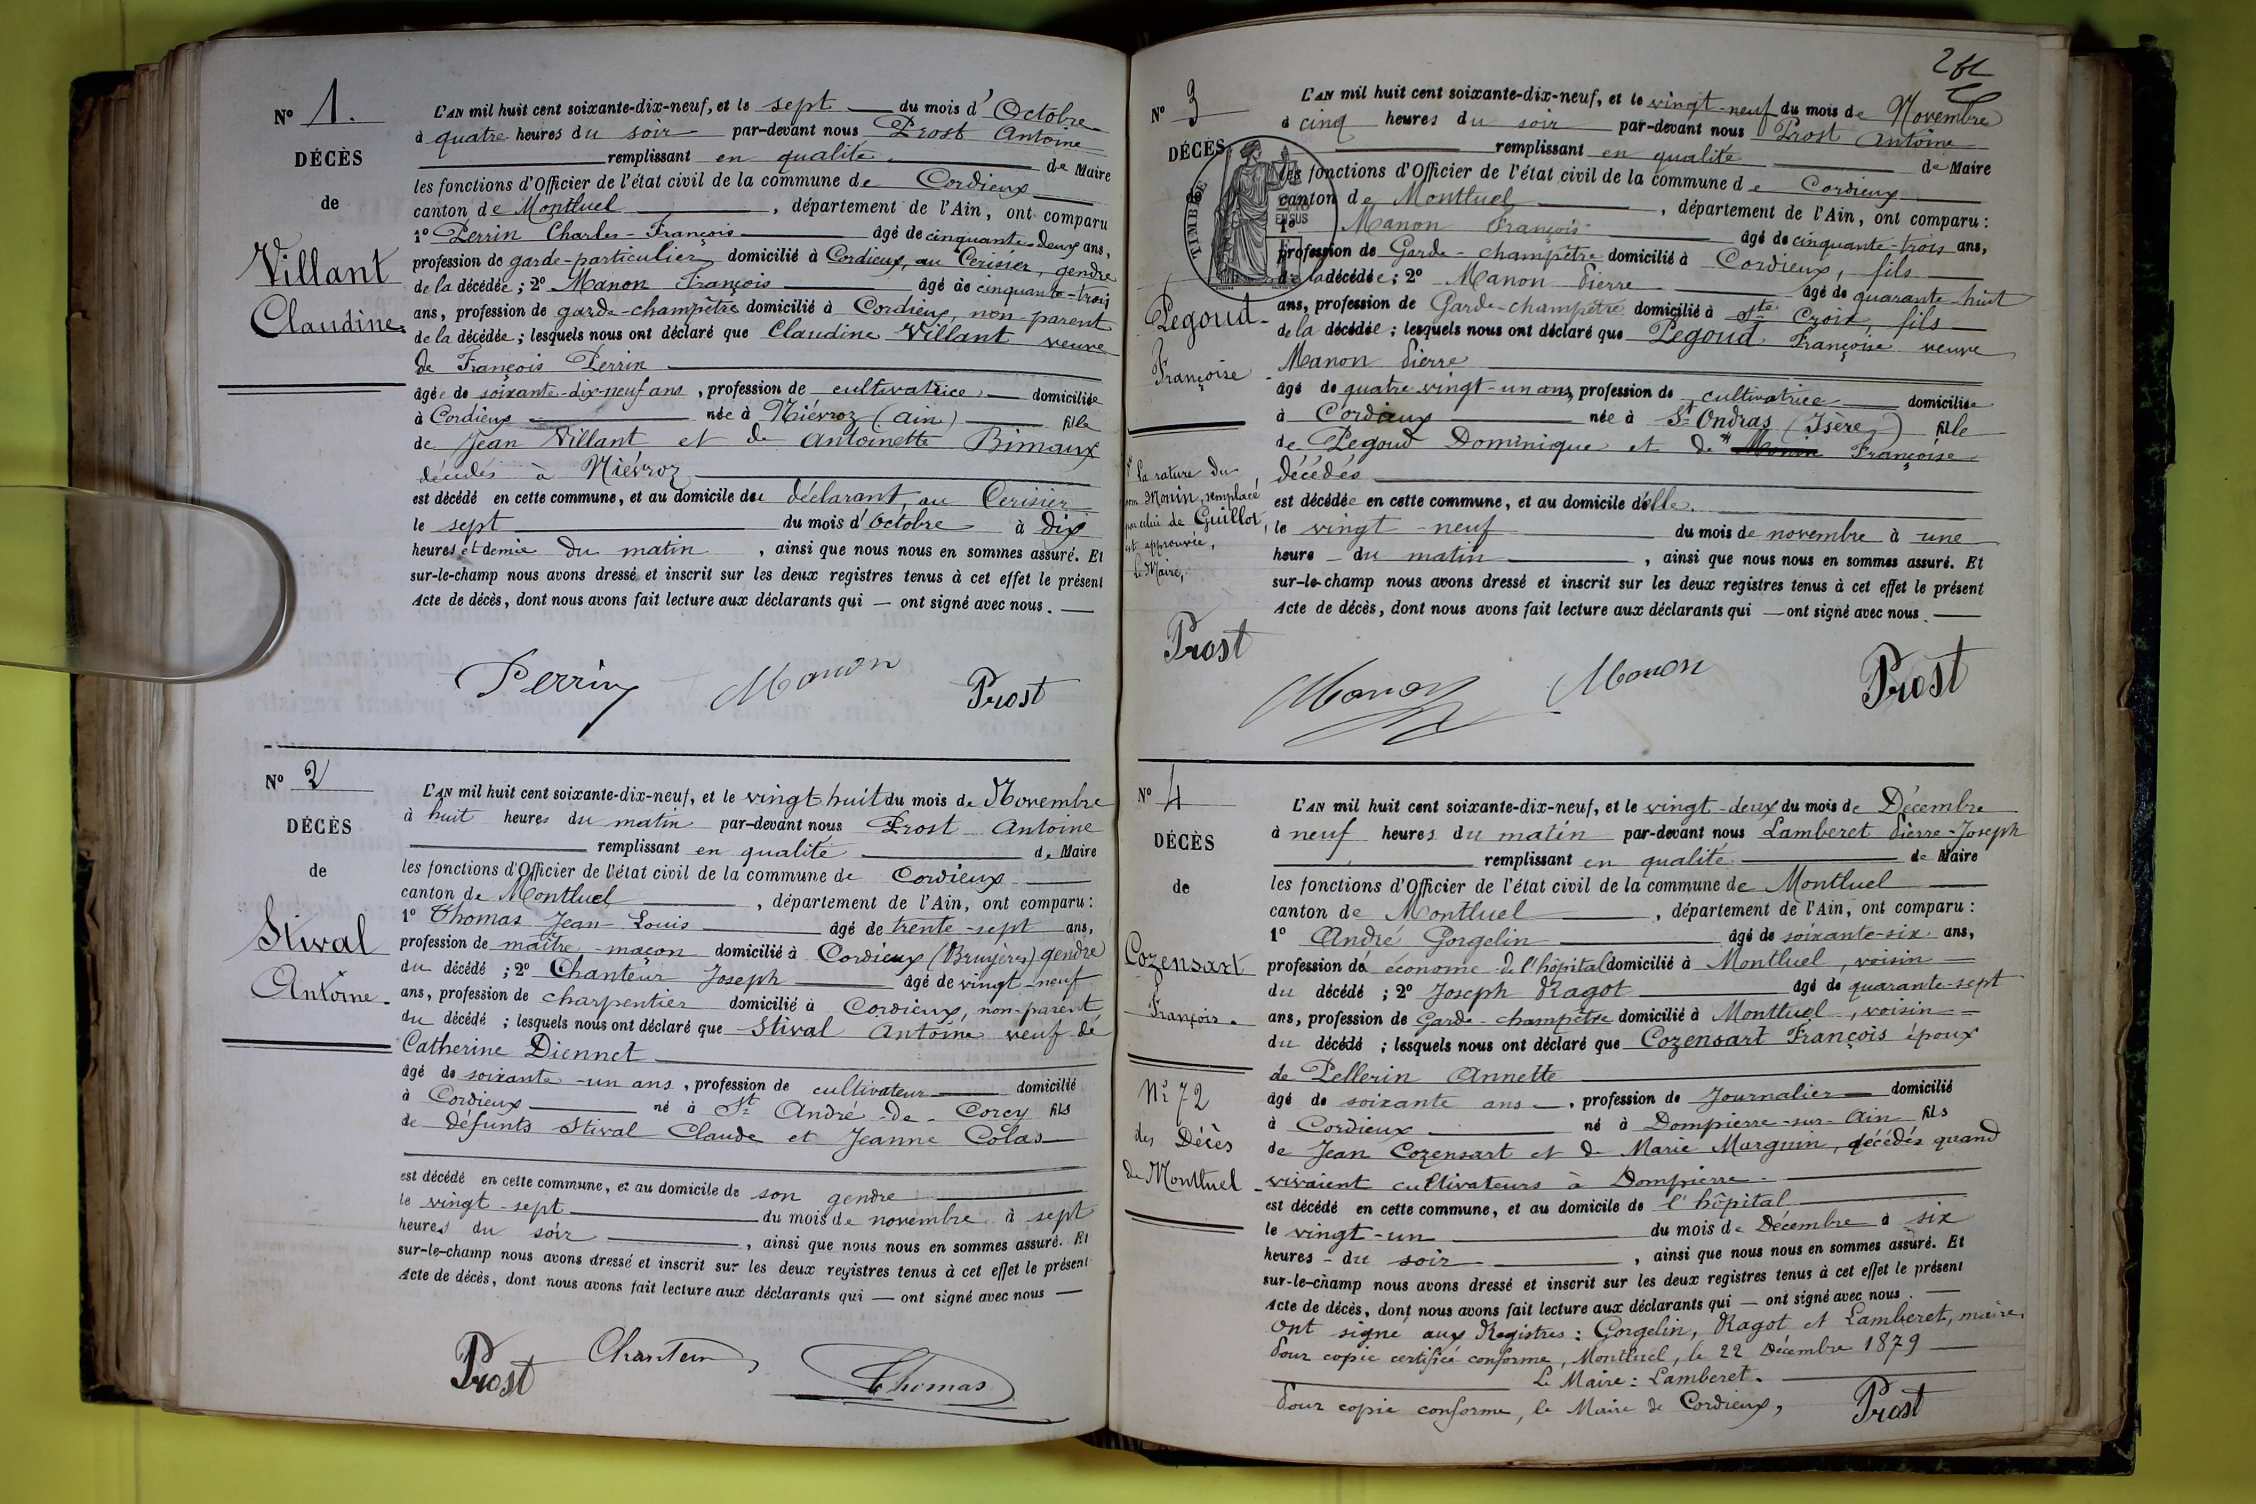 No 1.
DÉCÈS
de
Villant
Claudine.
L'AN mil huit cent soixante-dix-neuf, et le sept du mois d'Octobre
à quatre heures du soir par-devant nous Prost Antoine
remplissant en qualité de Maire
les fonctions d'Officier de l'état civil de la commune de Cordieux
canton de Montluel, département de l'Ain, ont comparu
1º Perrin Charles-François âgé de cinquante-deux ans,
profession de garde-particulier domicilié à Cordieux, au Cerisier, gendre
de la décédée; 2º Manon François âgé de cinquante-trois
ans, profession de garde-champêtre domicilié à Cordieux, non-parent
de la décédée; lesquels nous ont déclaré que Claudine Villant veuve
de François Perrin
âgée de soixante-dix-neuf ans, profession de cultivatrice domiciliée
à Cordieux née à Niévroz (Ain) fille
de Jean Villant et de Antoinette Bimaux
décédés à Niévroz
est décédé en cette commune, et au domicile du déclarant, au Cerisier
le sept du mois d'Octobre à dix
heures et demie du matin, ainsi que nous nous en sommes assuré. Et
sur-le-champ nous avons dressé et inscrit sur les deux registres tenus à cet effet le présent
Acte de décès, dont nous avons fait lecture aux déclarants qui — ont signé avec nous.
Perrin Manon Prost
No 2
DÉCÈS
de
Stival
Antoine.
L'AN mil huit cent soixante-dix-neuf, et le vingt-huit du mois de Novembre
à huit heures du matin par-devant nous Prost Antoine
remplissant en qualité de Maire
les fonctions d'Officier de l'état civil de la commune de Cordieux
canton de Montluel, département de l'Ain, ont comparu:
1º Thomas Jean-Louis âgé de trente-sept ans,
profession de maître-maçon domicilié à Cordieux (Bruyères) gendre
du décédé; 2º Chanteur Joseph âgé de vingt-neuf
ans, profession de charpentier domicilié à Cordieux, non-parent
du décédé; lesquels nous ont déclaré que Stival Antoine veuf de
Catherine Diennet
âgé de soixante-un ans, profession de cultivateur domicilié
à Cordieux né à St André-de-Corcy fils
de défunts Stival Claude et Jeanne Colas
est décédé en cette commune, et au domicile de son gendre
le vingt-sept du mois de novembre à sept
heures du soir, ainsi que nous nous en sommes assuré. Et
sur-le-champ nous avons dressé et inscrit sur les deux registres tenus à cet effet le présent
Acte de décès, dont nous avons fait lecture aux déclarants qui — ont signé avec nous
Prost Chanteur Thomas
No 3
DÉCÈS
TIMBRE
EN SUS
Pegoud
Françoise
L'AN mil huit cent soixante-dix-neuf, et le vingt-neuf du mois de Novembre
à cinq heures du soir par-devant nous Prost Antoine
remplissant en qualité de Maire
les fonctions d'Officier de l'état civil de la commune de Cordieux
canton de Montluel, département de l'Ain, ont comparu:
1º Manon François âgé de cinquante-trois ans,
profession de Garde-champêtre domicilié à Cordieux, fils
de la décédée; 2º Manon Pierre âgé de quarante-huit
ans, profession de Garde-champêtre domicilié à Ste Croix, fils
de la décédée; lesquels nous ont déclaré que Pegoud Françoise veuve
Manon Pierre
âgé de quatre-vingt-un ans, profession de cultivatrice domiciliée
à Cordieux née à St Ondras (Isère) fille
de Pegoud Dominique et de Monin Françoise
décédés
est décédée en cette commune, et au domicile d'elle
le vingt-neuf du mois de novembre à une
heure du matin, ainsi que nous nous en sommes assuré. Et
sur-le-champ nous avons dressé et inscrit sur les deux registres tenus à cet effet le présent
Acte de décès, dont nous avons fait lecture aux déclarants qui — ont signé avec nous.
La rature du
nom Monin, remplacé
par celui de Guillot,
est approuvée,
Le Maire,
Prost
Manon Manon Prost
No 4
DÉCÈS
de
Cozensart
François.
No 72
des Décès
de Montluel
L'AN mil huit cent soixante-dix-neuf, et le vingt-deux du mois de Décembre
à neuf heures du matin par-devant nous Lamberet Pierre-Joseph
remplissant en qualité de Maire
les fonctions d'Officier de l'état civil de la commune de Montluel
canton de Montluel, département de l'Ain, ont comparu:
1º André Gorgelin âgé de soixante-six ans,
profession de économe de l'hôpital domicilié à Montluel, voisin
du décédé; 2º Joseph Ragot âgé de quarante-sept
ans, profession de Garde-champêtre domicilié à Montluel, voisin
du décédé; lesquels nous ont déclaré que Cozensart François époux
de Pellerin Annette
âgé de soixante ans, profession de Journalier domicilié
à Cordieux né à Dompierre-sur-Ain fils
de Jean Cozensart et de Marie Marguin, décédés quand
vivaient cultivateurs à Dompierre
est décédé en cette commune, et au domicile de l'hôpital
le vingt-un du mois de Décembre à six
heures du soir, ainsi que nous nous en sommes assuré. Et
sur-le-champ nous avons dressé et inscrit sur les deux registres tenus à cet effet le présent
Acte de décès, dont nous avons fait lecture aux déclarants qui — ont signé avec nous.
Ont signé aux Registres: Gorgelin, Ragot et Lamberet, maire.
Pour copie certifiée conforme, Montluel, le 22 Décembre 1879
Le Maire: Lamberet.
Pour copie conforme, le Maire de Cordieux,
Prost